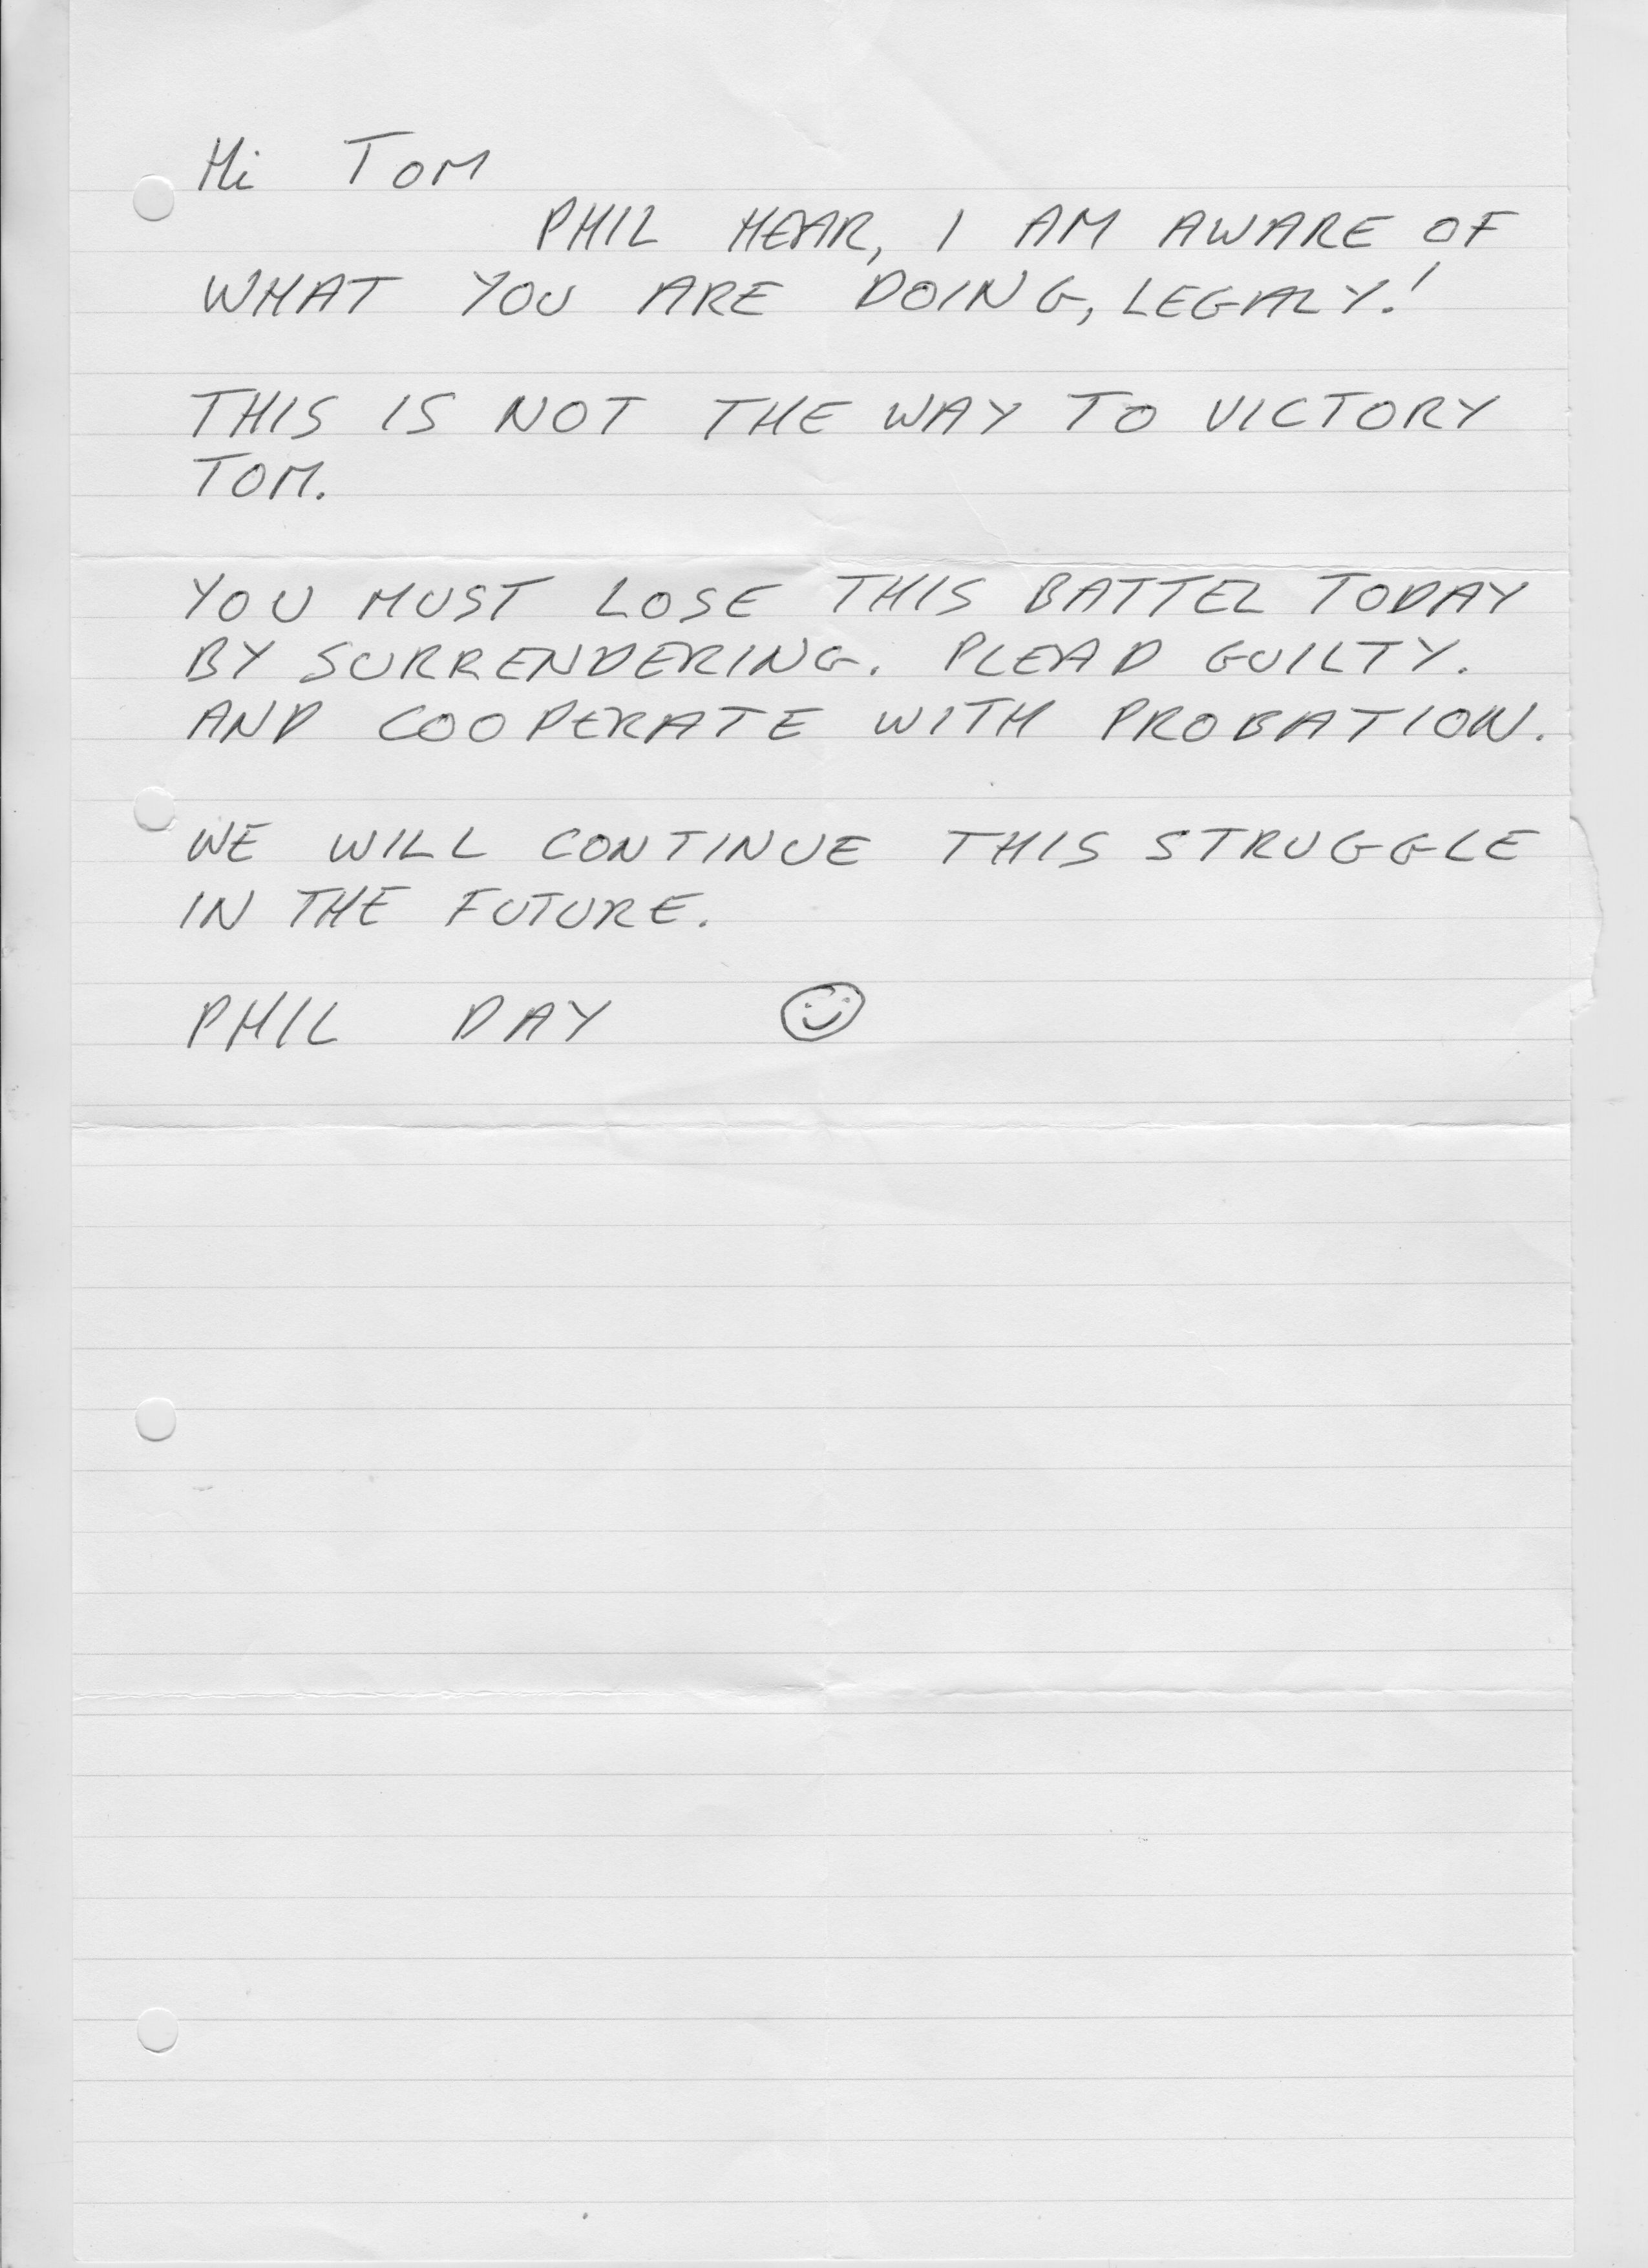 Hi TOM
PHIL HEAR, I AM AWARE OF
WHAT YOU ARE DOING, LEGALY!
THIS IS NOT THE WAY TO VICTORY
TOM.
YOU MUST LOSE THIS BATTEL TODAY
BY SURRENDERING. PLEAD GUILTY.
AND COOPERATE WITH PROBATION.
WE WILL CONTINUE THIS STRUGGLE
IN THE FUTURE.
PHIL DAY